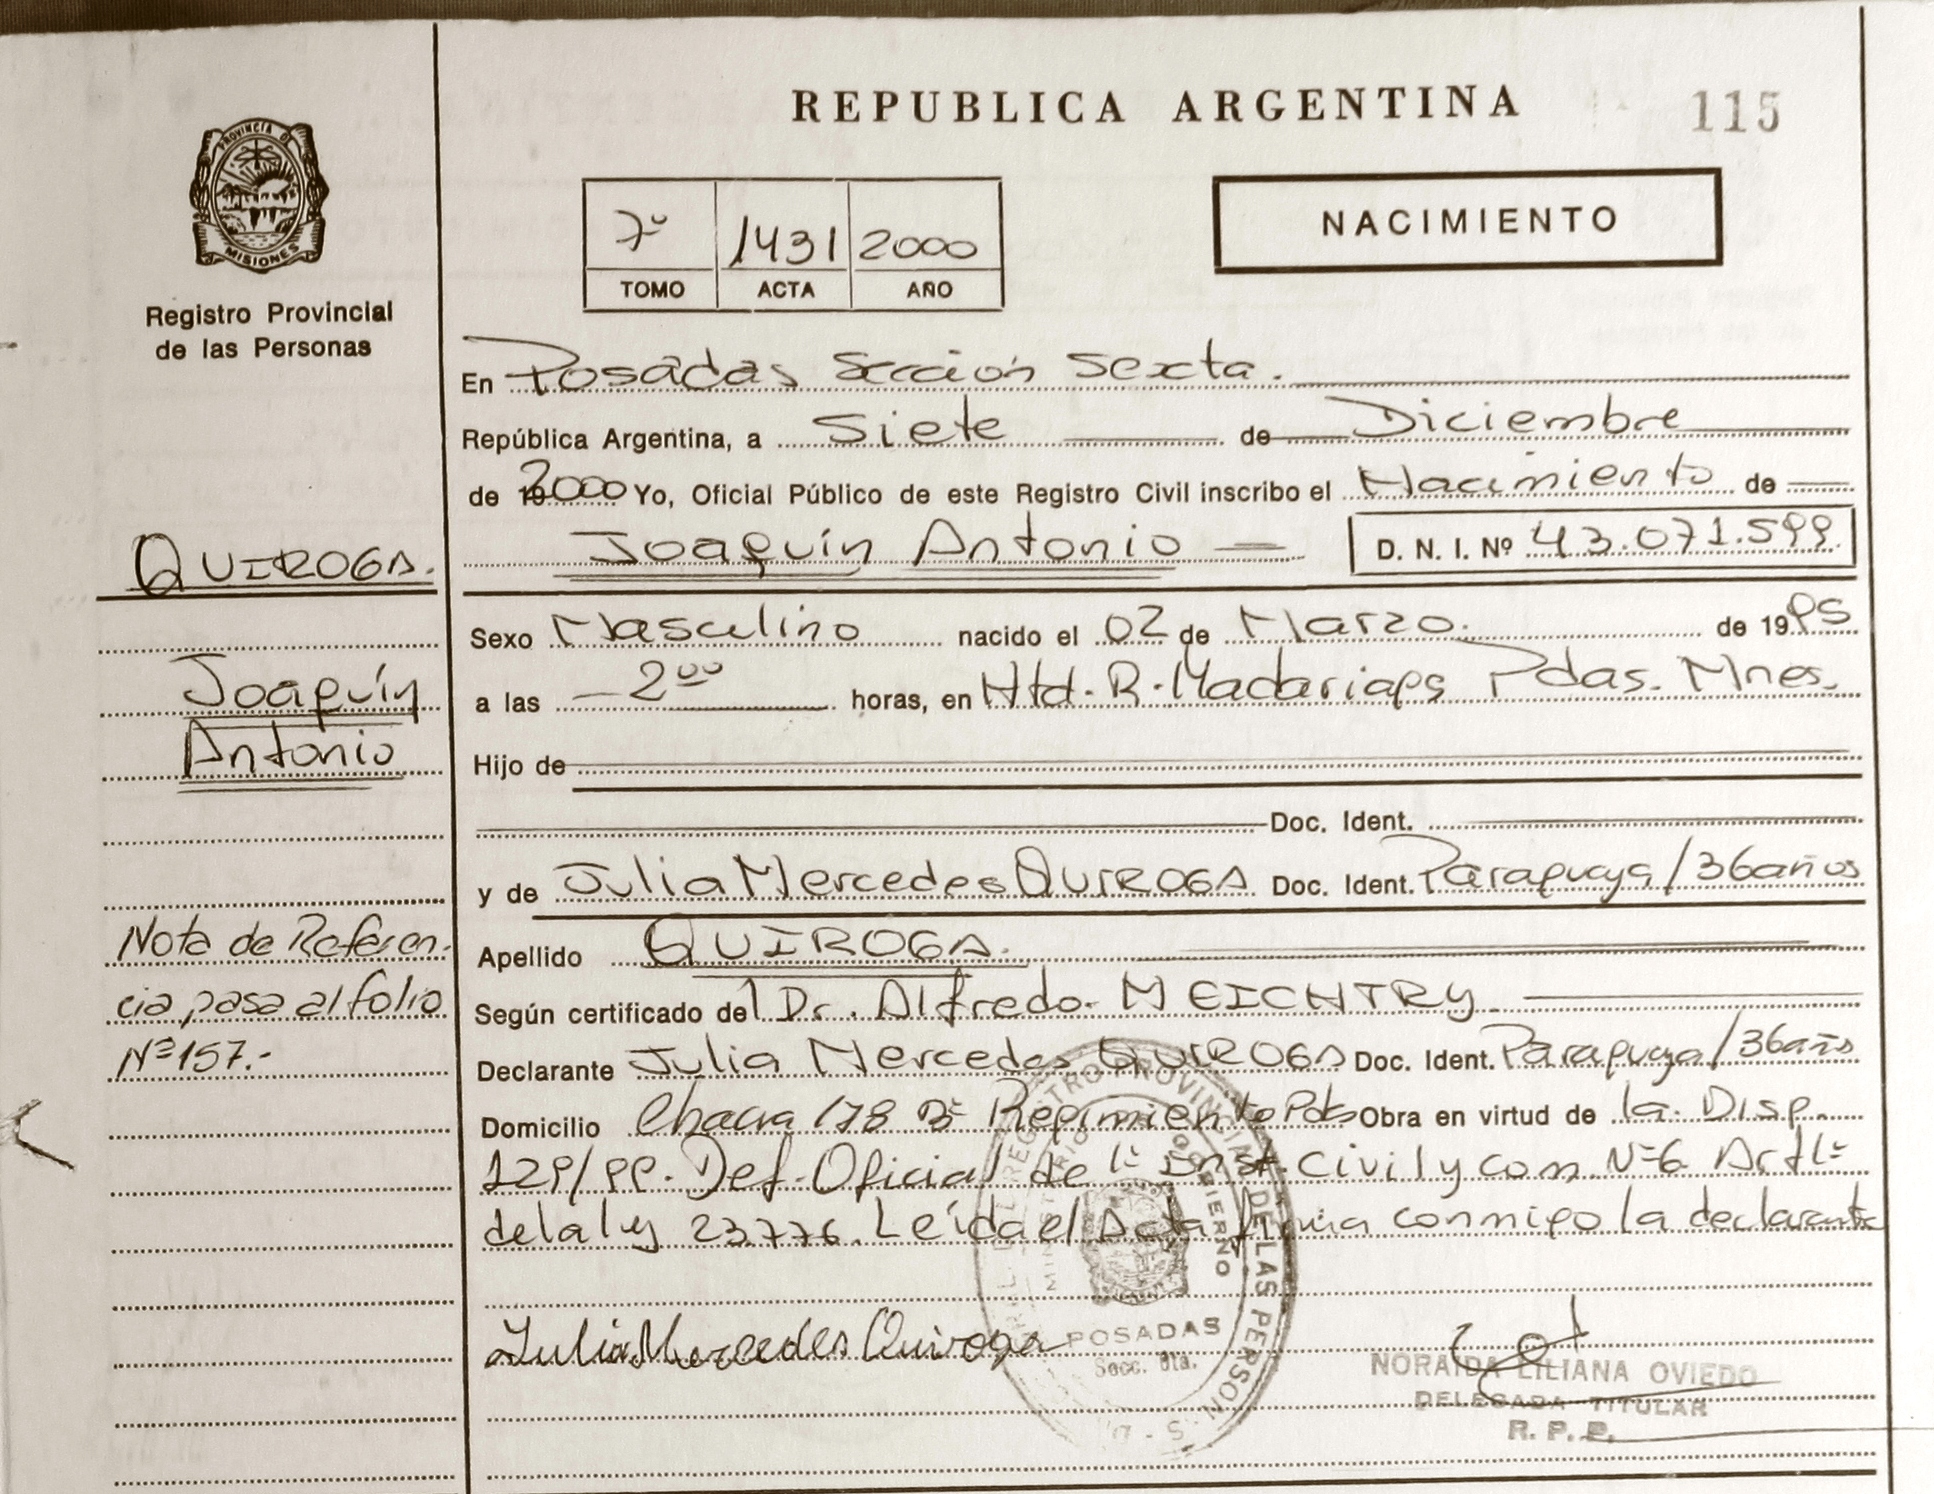 REPUBLICA ARGENTINA
115
PROVINCIA DE
MISIONES
Registro Provincial
de las Personas
7º 1431 2000
TOMO ACTA AÑO
NACIMIENTO
En Posadas Sección Sexta.
República Argentina, a Siete de Diciembre
de 2000 Yo, Oficial Público de este Registro Civil inscribo el Nacimiento de
Joaquín Antonio D. N. I. Nº 43.071.599
QUIROGA.
Sexo Masculino nacido el 02 de Marzo. de 1995
Joaquín
Antonio
a las 2⁰⁰ horas, en Htal. R. Madariaga Pdas. Mnes.
Hijo de
Doc. Ident.
y de Julia Mercedes QUIROGA Doc. Ident. Paraguaya/36años
Apellido QUIROGA.
Según certificado del Dr. Alfredo MEICHTRY
Declarante Julia Mercedes QUIROGA Doc. Ident. Paraguaya/36años
Domicilio Chacra 178 Bº Regimiento Pdas Obra en virtud de la Disp.
129/99. Def. Oficial de 1º Inst. Civil y Com. Nº6 Art 1º
de la ley 23.776. Leída el Acta firma conmigo la declarante
Nota de Referen-
cia, pasa al folio
Nº 157.-
Julia Mercedes Quiroga
REGISTRO PROVINCIAL DE LAS PERSONAS
MINISTERIO DE GOBIERNO
POSADAS
Secc. 6ta.
NORAIDA LILIANA OVIEDO
DELEGADA TITULAR
R. P. P.